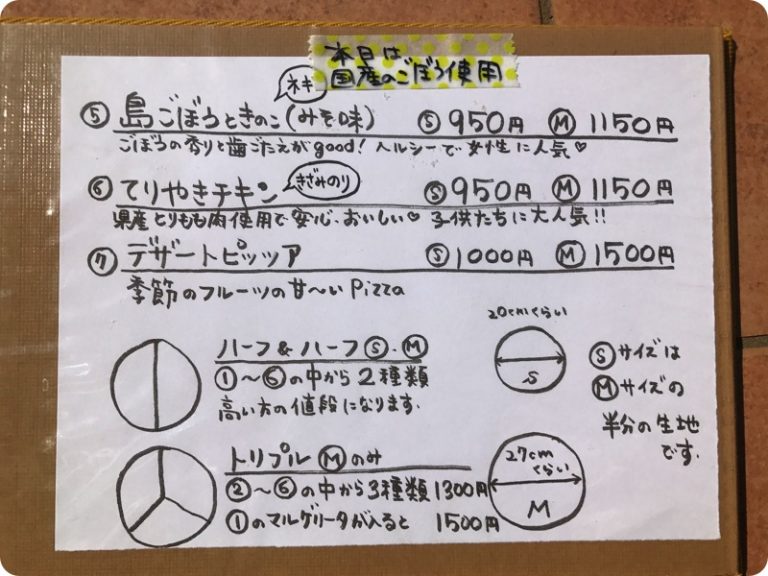 本日は
国産のごぼう使用
ネギ
⑤ 島ごぼうときのこ(みそ味) Ⓢ 950円 Ⓜ 1150円
ごぼうの香りと歯ごたえがgood! ヘルシーで女性に人気♡
きざみのり
⑥ てりやきチキン Ⓢ 950円 Ⓜ 1150円
県産とりもも肉使用で安心、おいしい♡ 子供たちに大人気!!
⑦ デザートピッツア Ⓢ 1000円 Ⓜ 1500円
季節のフルーツの甘〜いPizza
ハーフ&ハーフ Ⓢ・Ⓜ
①〜⑥の中から2種類
高い方の値段になります.
トリプル Ⓜのみ
②〜⑥の中から3種類 1300円
①のマルゲリータが入ると 1500円
20cmくらい
S
27cm
くらい
M
Ⓢサイズは
Ⓜサイズの
半分の生地
です.